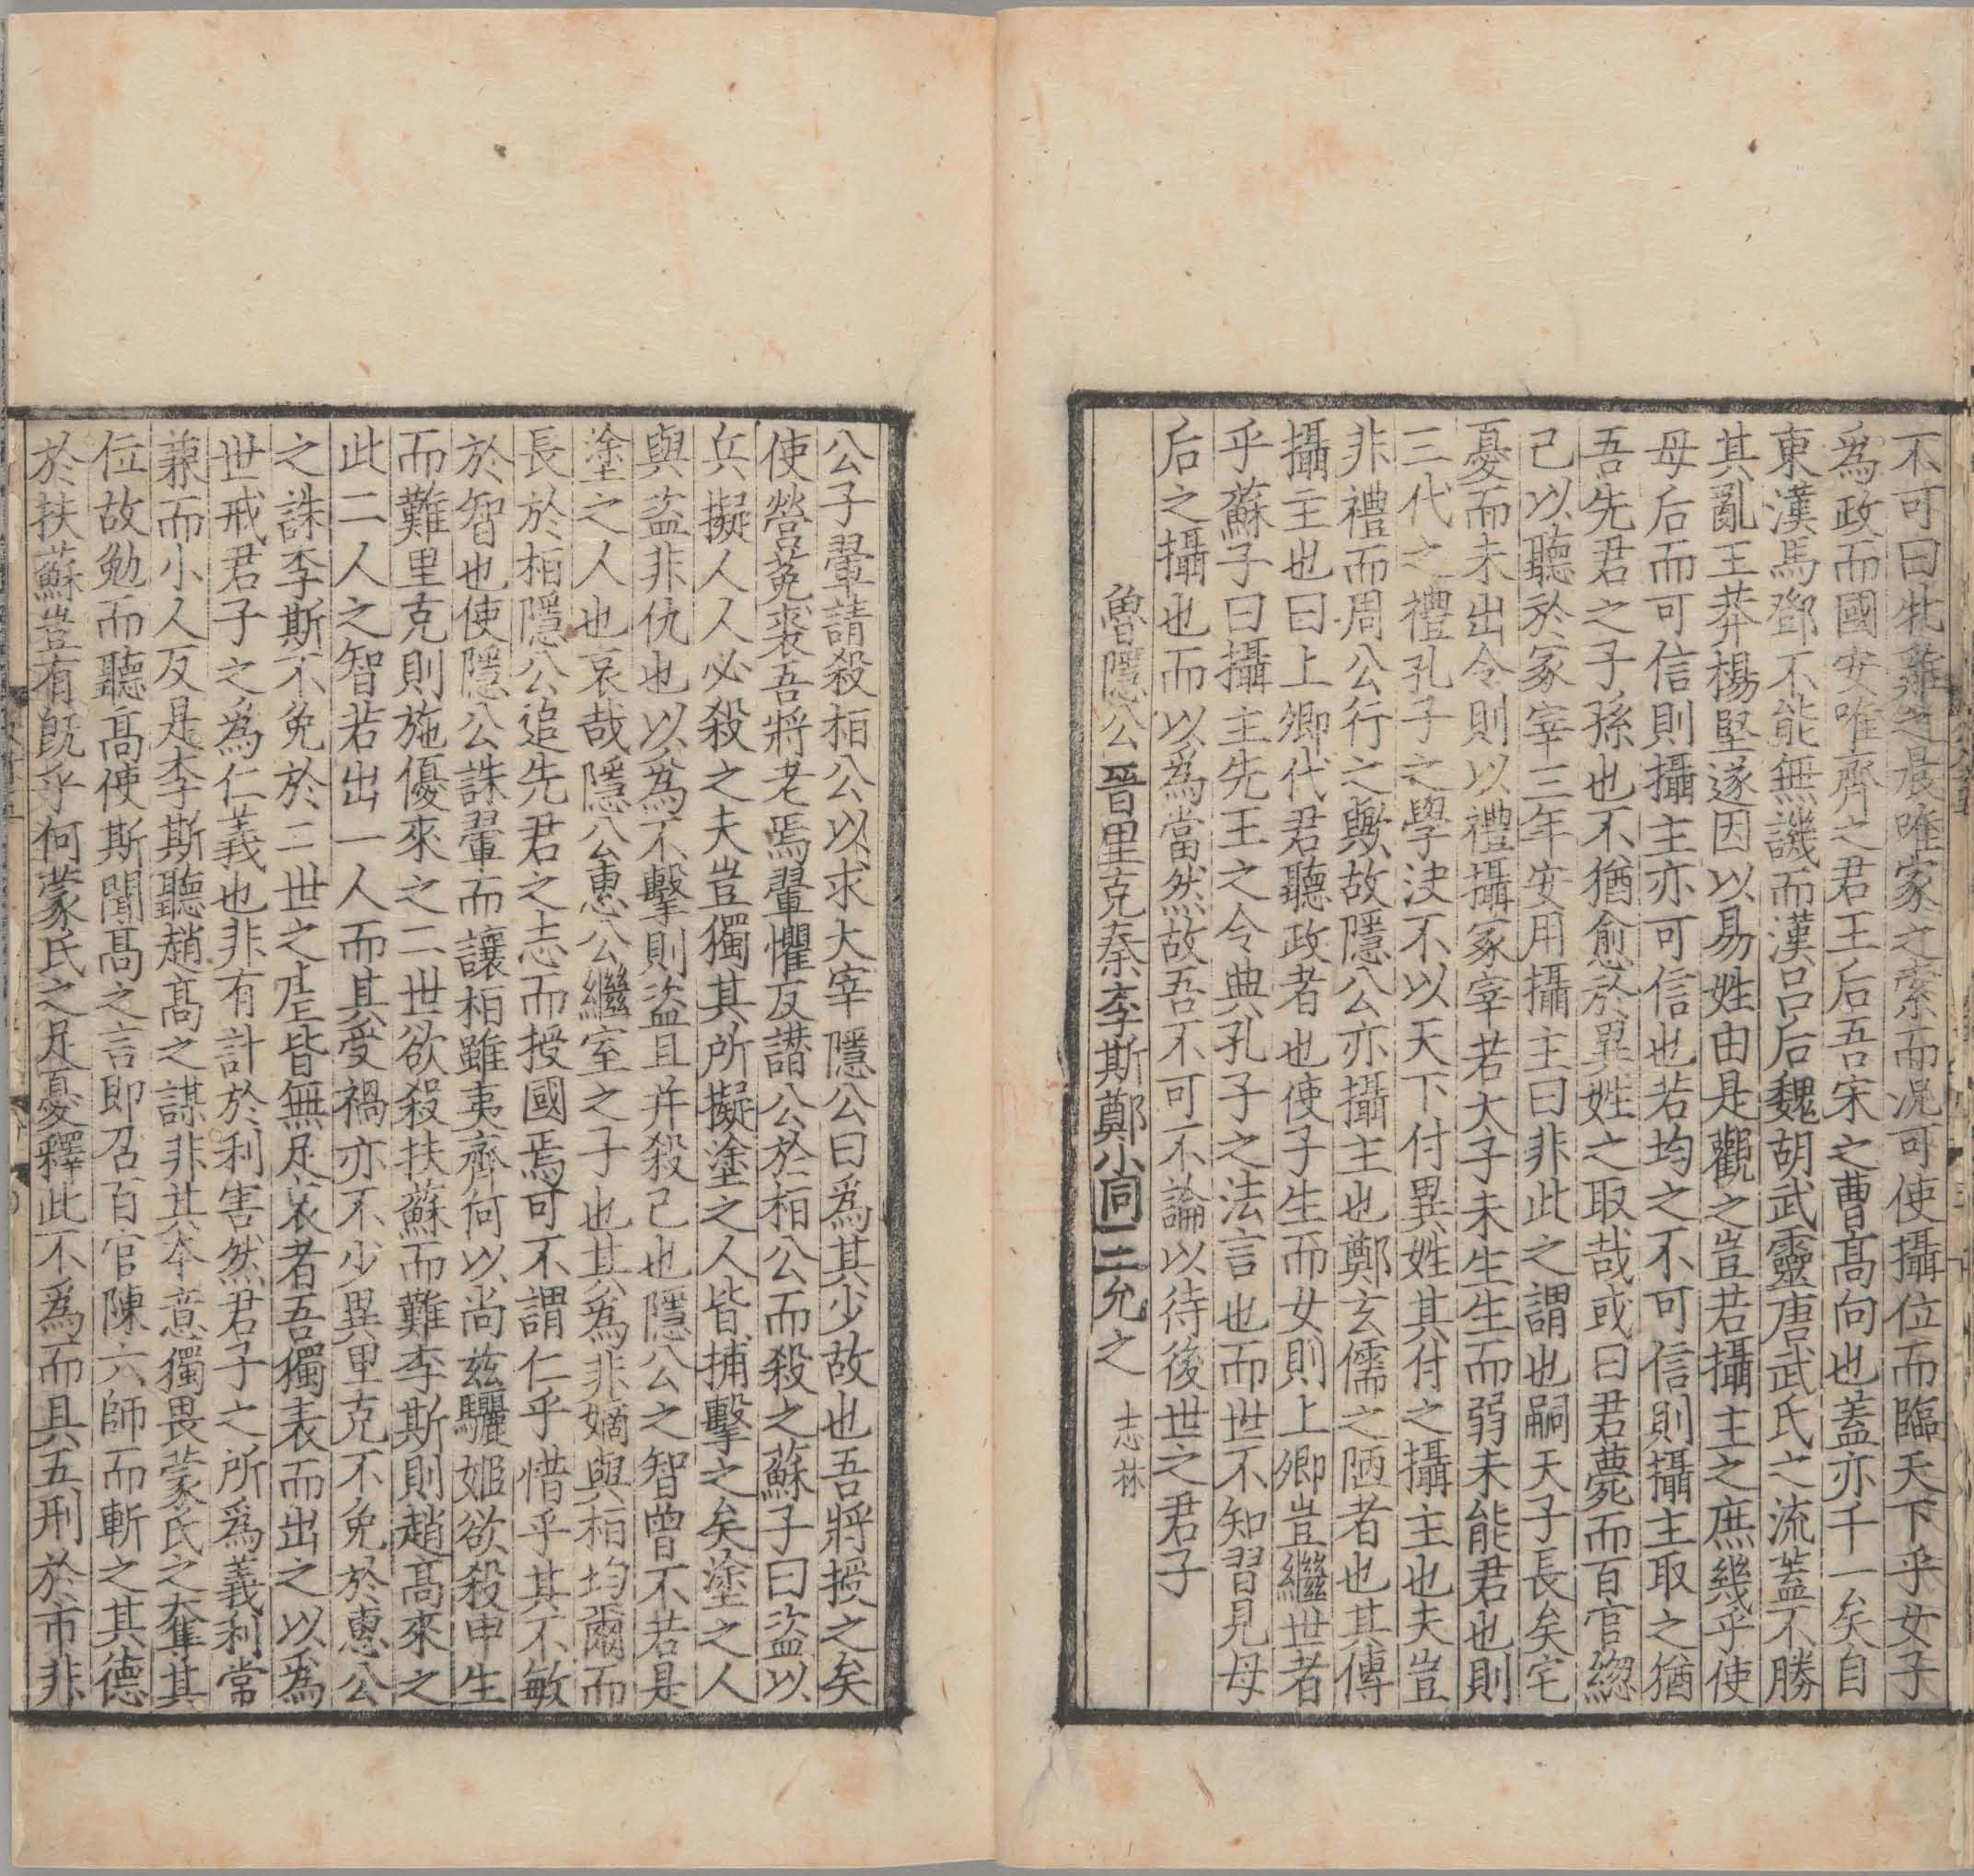 不可曰牝雞之晨唯家之索而况可使攝位而臨天下乎女子
為政而國安唯齊之君王后吾宋之曹髙向也蓋亦千一矣自
東漢馬鄧不能無譏而漢吕后魏胡武靈唐武氏之流蓋不勝
其亂王莽楊堅遂因以易姓由是觀之豈若攝主之庶幾乎使
母后而可信則攝主亦可信也若均之不可信則攝主取之猶
吾先君之子孫也不猶愈於異姓之取哉或曰君薨而百官緫
己以聽於冢宰三年安用攝主曰非此之謂也嗣天子長矣宅
憂而未出令則以禮攝冢宰若大子未生生而弱未能君也則
三代之禮孔子之學决不以天下付異姓其付之攝主也夫豈
非禮而周公行之歟故隱公亦攝主也鄭玄儒之陋者也其傳
攝主也曰上卿代君聽政者也使子生而女則上卿豈繼世者
乎蘇子曰攝主先王之令典孔子之法言也而世不知習見母
后之攝也而以為當然故吾不可不論以待後世之君子
魯隱公晉里克秦李斯鄭小同王允之 志林
公子翬請殺桓公以求大宰隱公曰為其少故也吾將授之矣
使營菟裘吾將老焉翬懼反譖公於桓公而殺之蘇子曰盗以
兵擬人人必殺之夫豈獨其所擬塗之人皆捕擊之矣塗之人
與盗非仇也以為不擊則盗且并殺己也隱公之智曾不若是
塗之人也哀哉隱公惠公繼室之子也其為非嫡與桓均爾而
長於桓隱公追先君之志而授國焉可不謂仁乎惜乎其不敏
於智也使隱公誅翬而讓桓雖夷齊何以尚兹驪姬欲殺申生
而難里克則施優來之二世欲殺扶蘇而難李斯則趙髙來之
此二人之智若出一人而其受禍亦不少異里克不免於惠公
之誅李斯不免於二世之虐皆無足哀者吾獨表而出之以為
世戒君子之為仁義也非有計於利害然君子之所為義利常
蒹而小人反是李斯聽趙髙之謀非其本意獨畏蒙氏之奪其
位故勉而聽髙使斯聞髙之言即召百官陳六師而斬之其德
於扶蘇豈有既乎何蒙氏之足憂釋此不為而具五刑於市非